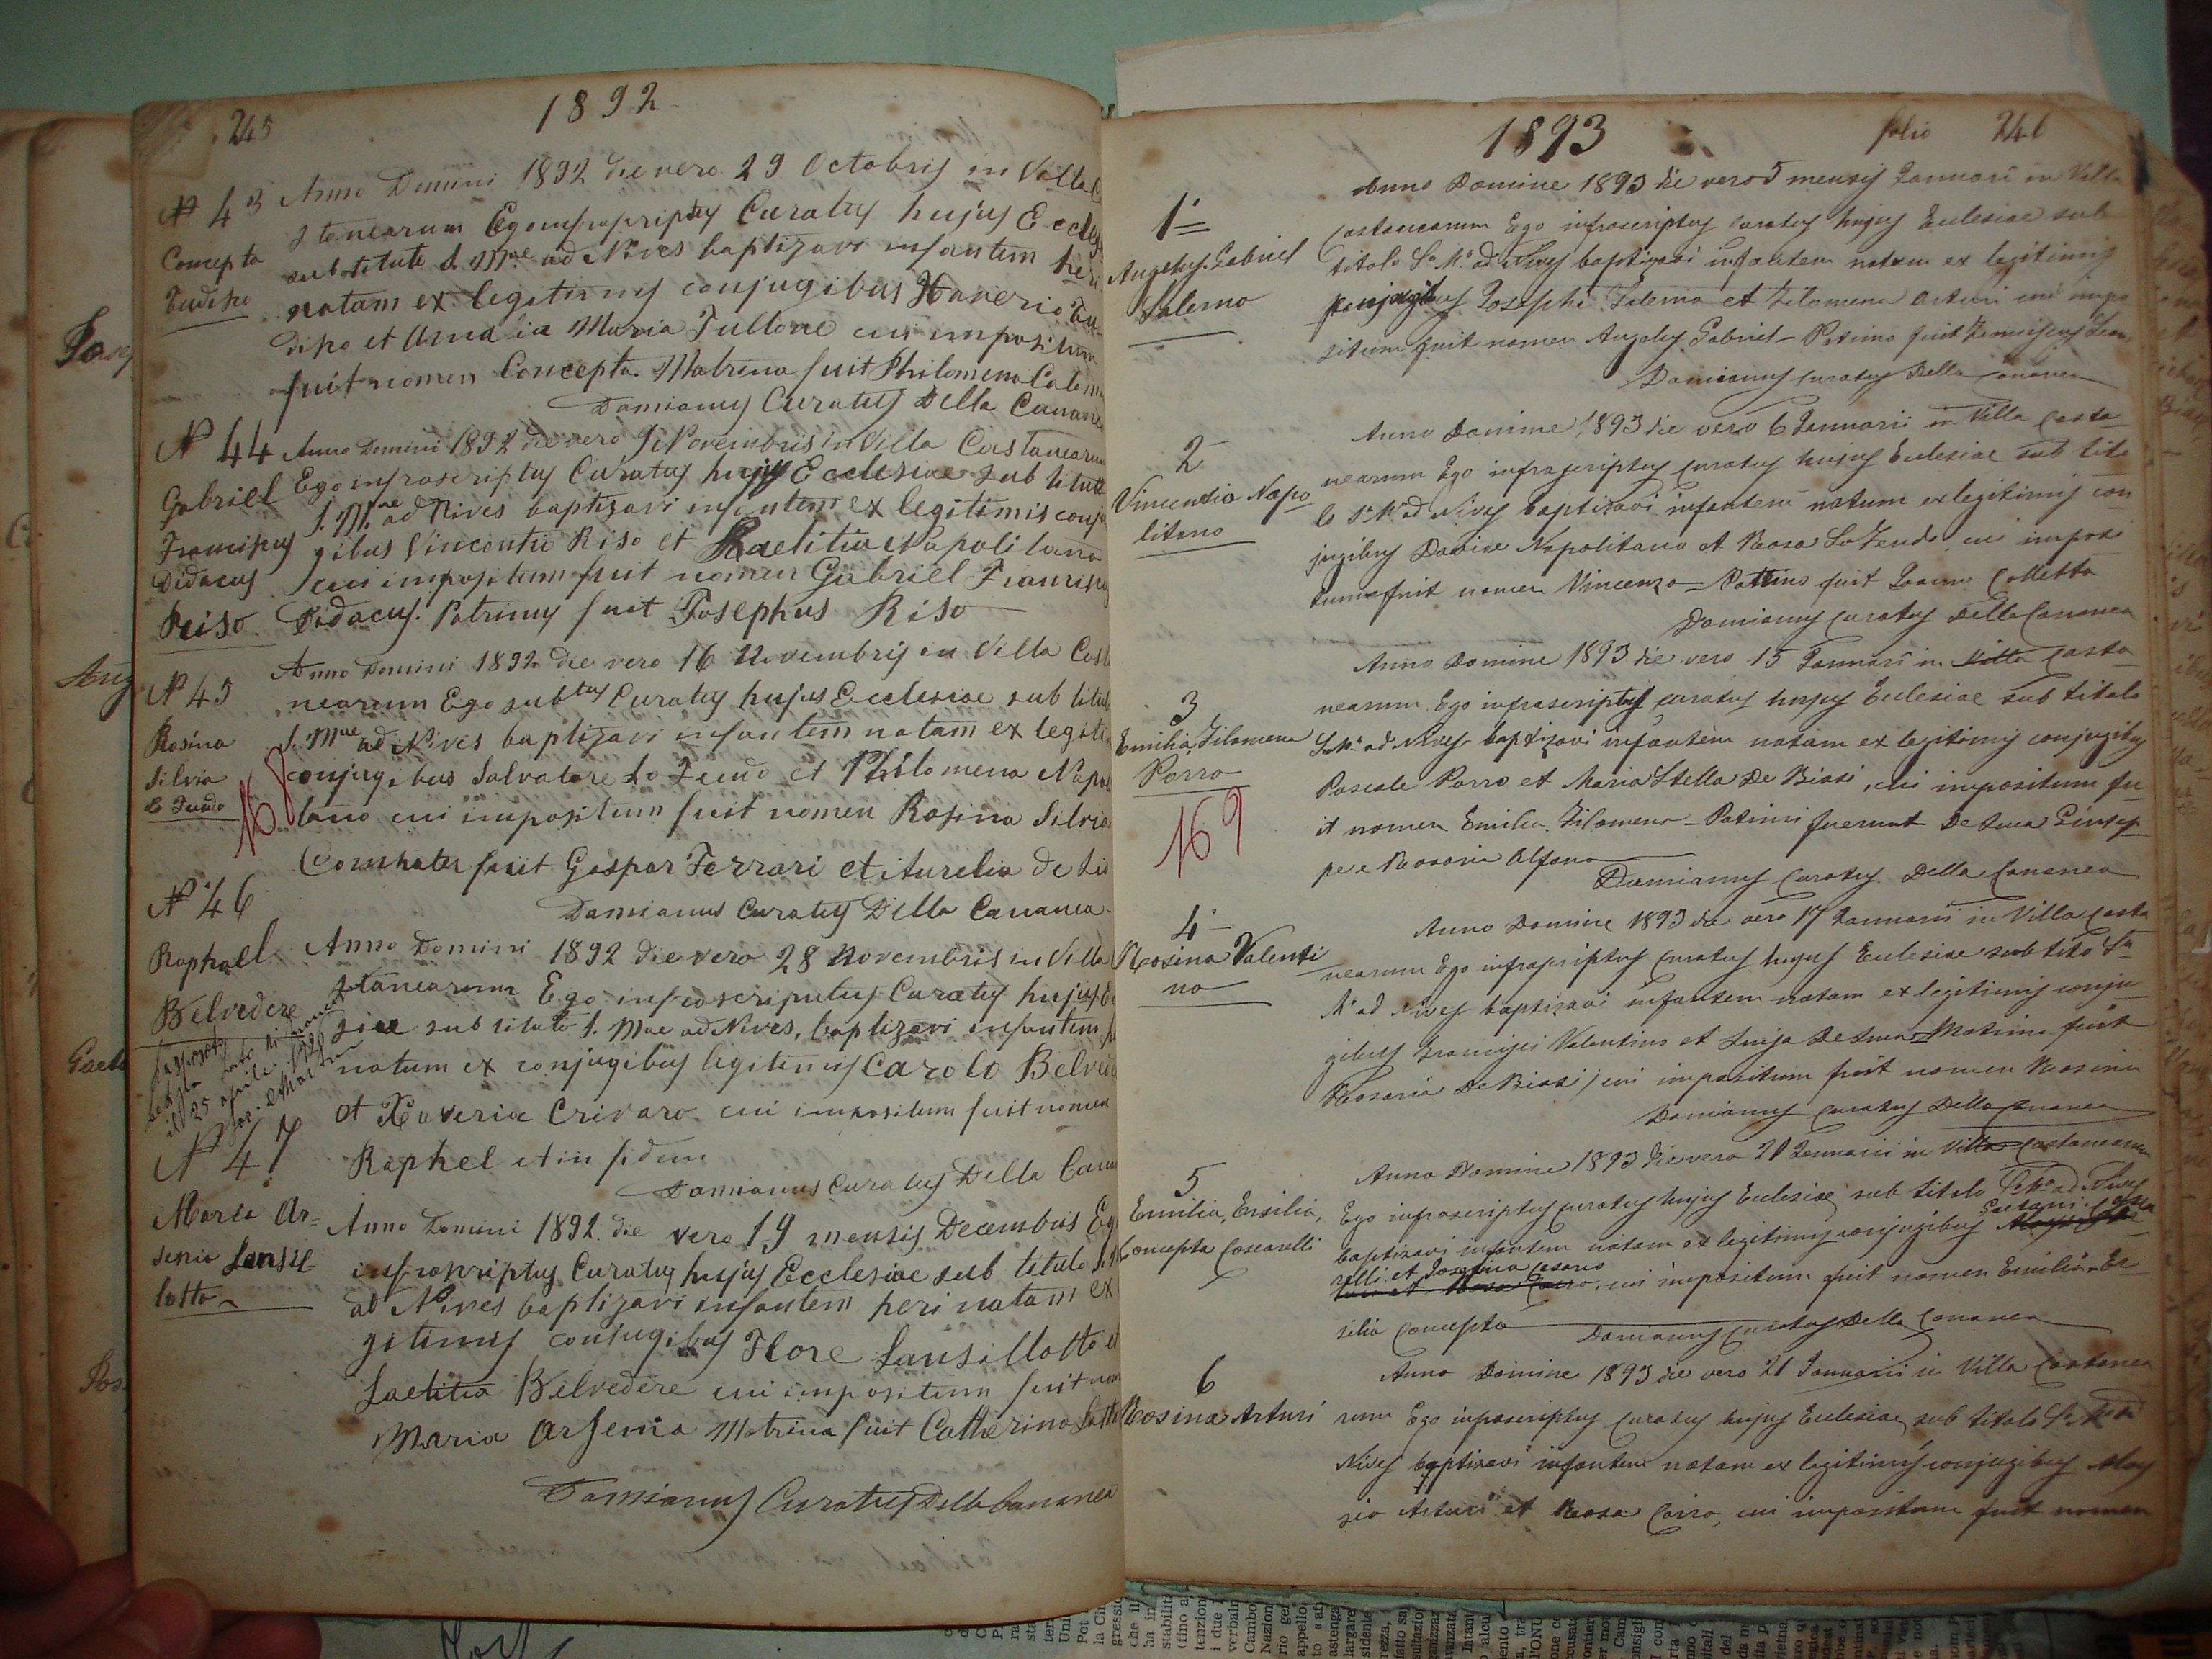 245
1892
N 43
Concepta
Anno Domini 1892 die vero 29 Octobris in Villa
stanearum Ego infrascriptus Curatus hujus Eccles
sub titulo S. Mae ad Nives baptizavi infantem heri
natam ex legitimis conjugibus Xaverio
dipo et Amalia Maria Tullone cui impositum
fuit nomen Concepta. Matrina fuit Philomena
Damianus Curatus Della Canane
N 44
Gabriel
Franciscus
Didacus
Riso
Anno Domini 1892 die vero Novembris in Villa Castanearum
Ego infrascriptus Curatus hujus Ecclesiae sub titulo
S. Mae ad Nives baptizavi infantem ex legitimis conju
gibus Vincentio Riso et Laetitia Napolitano
cui impositum fuit nomen Gabriel Franciscus
Didacus. Patrinus fuit Josephus Riso
N 45
Rosina
Silvia
Lo Feudo
168
Anno Domini 1892 die vero 16 Novembris in Villa Cast
nearum Ego subtus Curatus hujus Ecclesiae sub titul
S. Mae ad Nives baptizavi infantem natam ex legiti
conjugibus Salvatore Lo Feudo et Philomena Napol
tano cui impositum fuit nomen Rosina Silvia
Comhater fuit Gaspar Ferrari et Aurelia de
Damianus Curatus Della Cananea
N 46
Raphael
Belvedere
il 25 aprile
Anno Domini 1892 die vero 28 Novembris in Villa
stanearum Ego infrascriptus Curatus hujus
siae sub titulo S. Mae ad Nives, baptizavi infantem
natum ex conjugibus legitimis Carolo Belved
et Xaveria Crivaro cui impositum fuit nomen
Raphel et in fidem
Damianus Curatus Della Cana
N 47
Maria Ar=
senia Lansil
lotto
Anno Domini 1892 die vero 19 mensis Decembris Eg
infrascriptus Curatus hujus Ecclesiae sub titulo
ad Nives baptizavi infantem heri natam ex
gitimis conjugibus Flore Lansillotto et
Laetitia Belvedere cui impositum fuit nom
Maria Arsenia Matrina fuit Catherina
Damianus Curatus Della Cananea
1893
folio 246
1
Angelus Gabriel
Salerno
Anno Domine 1893 die vero 5 mensis Januarii in Villa
Castanearum Ego infrascriptus curatus hujus Ecclesiae sub
titolo Sa Ma ad Nives baptizavi infantem natum ex legitimis
conjugibus Josephi Salerno et Filomena Arturi cui impo
situm fuit nomen Angelus Gabriel - Patrino fuit Franciscus
Damianus curatus Della Cananea
2
Vincenzio Napo
litano
Anno Domine 1893 die vero 6 Januarii in Villa Casta
nearum Ego infrascriptus curatus hujus Ecclesiae sub tito
lo Sa Ma ad Nives baptizavi infantem natum ex legitimis con
jugibus Davise Napolitano et Rosa Lo Feudo, cui imposi
tum fuit nomen Vincenzo - Patrino fuit Joanne Colletta
Damianus curatus Della Cananea
3
Emilia, Filomena
Porro
169
Anno Domine 1893 die vero 15 Januarii in Villa Casta
nearum Ego infrascriptus curatus hujus Ecclesiae sub titolo
Sa Ma ad Nives baptizavi infantem natam ex legitimis conjugibus
Pascale Porro et Maria Stella De Biasi, cui impositum fu
it nomen Emilia. Filomena - Patrini fuerunt De Luca Giusep
pe e Rosaria Alfano
Damianus Curatus Della Cananea
4
Rosina Valenti
no
Anno Domine 1893 die vero 17 Januarii in Villa Casta
nearum Ego infrascriptus curatus hujus Ecclesiae sub tito Sa
Ma ad Nives baptizavi infantem natam ex legitimis conju
gibus Francisci Valentino et Luisa De Luca - Matrina fuit
Rosaria De Biasi, cui impositum fuit nomen Rosina
Damianus curatus Della Cananea
5
Emilia, Ersilia,
Concepta Coscarelli
Anno Domine 1893 die vero 21 Januarii in Villa Castanearum
Ego infrascriptus curatus hujus Ecclesiae sub titolo S. Ma ad Nives
baptizavi infantem natam ex legitimis conjugibus Gaetani Cosca
relli et Josephina Cesario
Rosa Cairo, cui impositum fuit nomen Emilia Er
silia Concepta
Damianus curatus Della Cananea
6
Rosina Arturi
Anno Domine 1893 die vero 21 Januarii in Villa Castanea
rum Ego infrascriptus curatus hujus Ecclesiae sub titolo Sa Ma ad
Nives baptizavi infantem natam ex legitimis conjugibus Aloy
sio Arturi et Rosa Cairo, cui impositum fuit nomen